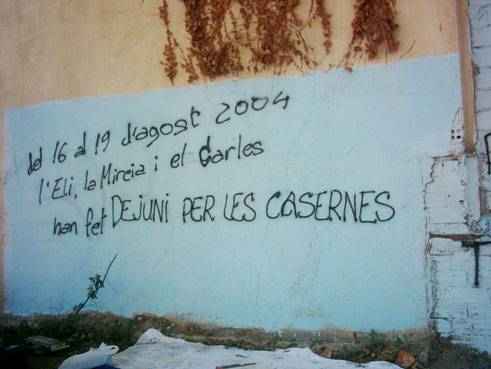 del 16 al 19 d'agost 2004
l'Eli, la Mircia i el Carles
han fet DEJUNI PER LES CASERNES